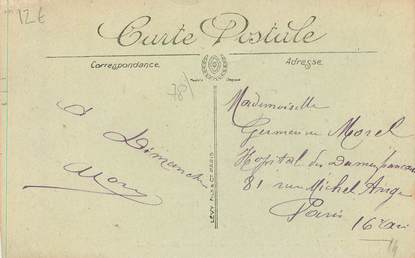 12€
Carte Postale
Correspondance
Adresse
78/
A Dimanche
Mademoiselle
Germaine Morel
Hopital des Dames françaises
81 rue Michel Ange
Paris
16e